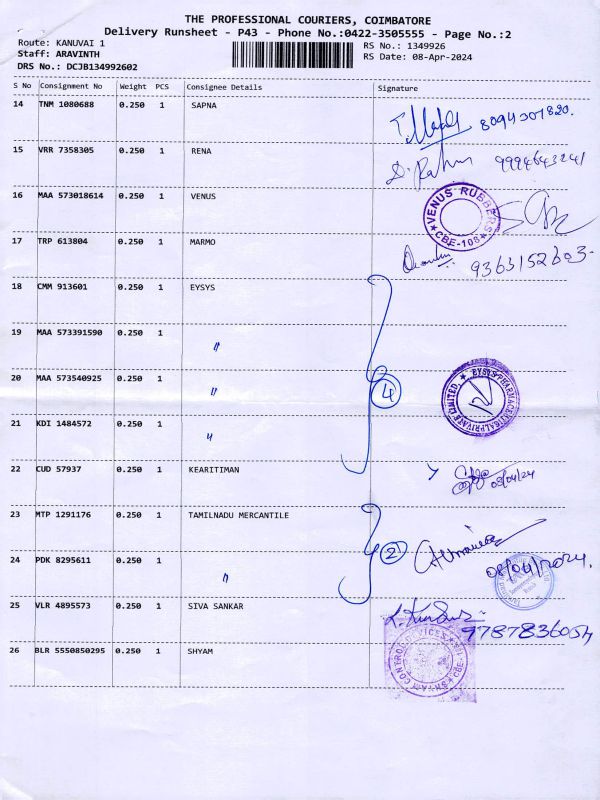 THE PROFESSIONAL COURIERS, COIMBATORE
Delivery Runsheet - P43 - Phone No.:0422-3505555 - Page No.:2
Route: KANUVAI 1
Staff: ARAVINTH
DRS No.: DCJB134992602
RS No.: 1349926
RS Date: 08-Apr-2024
S No Consignment No Weight PCS Consignee Details Signature
14 TNM 1080688 0.250 1 SAPNA
15 VRR 7358305 0.250 1 RENA 9994643241
16 MAA 573018614 0.250 1 VENUS
VENUS RUBBERS
CBE-108
17 TRP 613804 0.250 1 MARMO 9363152603
18 CMM 913601 0.250 1 EYSYS
19 MAA 573391590 0.250 1 "
20 MAA 573540925 0.250 1 " 4
EYSYS PHARMACEUTICAL PRIVATE LIMITED
21 KDI 1484572 0.250 1 "
22 CUD 57937 0.250 1 KEARITIMAN 08/04/24
23 MTP 1291176 0.250 1 TAMILNADU MERCANTILE
24 PDK 8295611 0.250 1 " 2 08/04/2024
25 VLR 4895573 0.250 1 SIVA SANKAR
26 BLR 5550850295 0.250 1 SHYAM
SHYAM CONTROL DEVICES